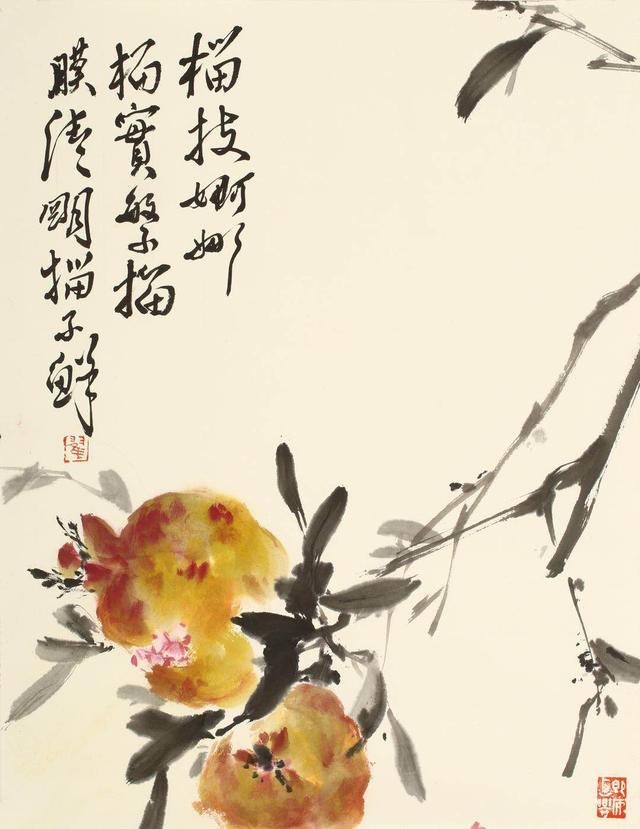 榴枝婀娜
榴實繁榴
膜清明榴子鮮